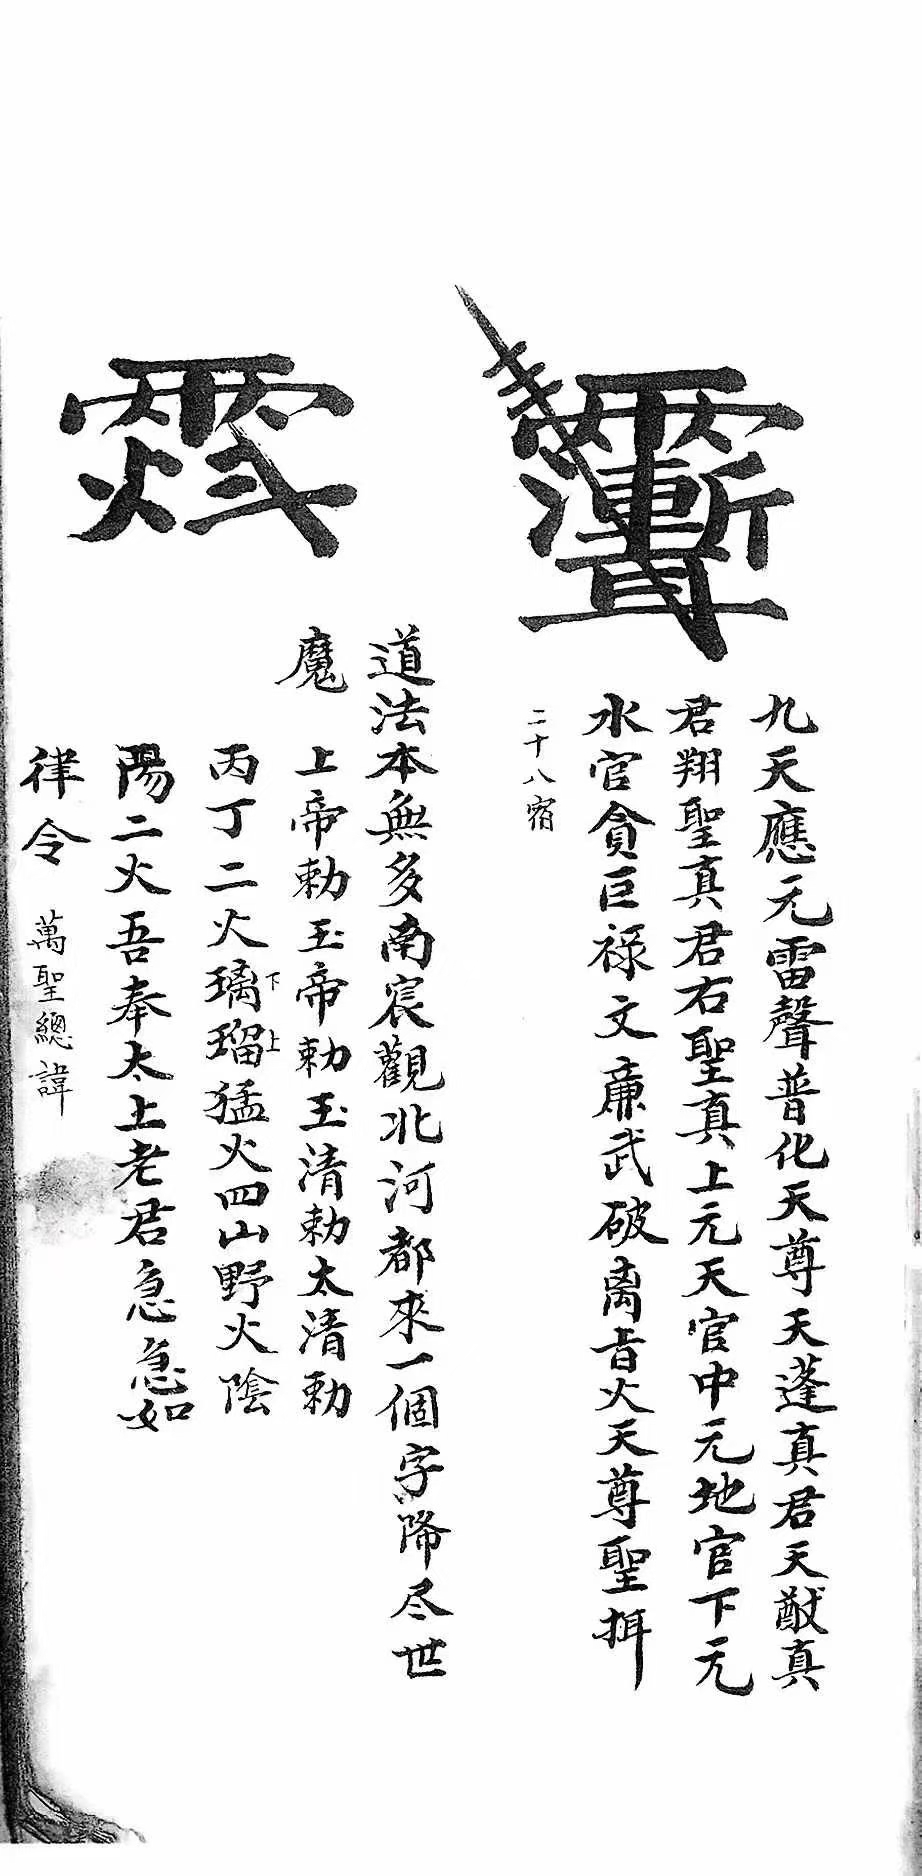 九天應元雷聲普化天尊天蓬真君天猷真
君翔聖真君右聖真上元天官中元地官下元
水官貪巨禄文廉武破離旨火天尊聖揖
二十八宿
道法本無多南宸觀北河都來一個字降尽世
魔
上帝勅玉帝勅玉清勅太清勅
丙丁二火璃下瑠上猛火四山野火陰
陽二火吾奉太上老君急急如
律令 萬聖總諱